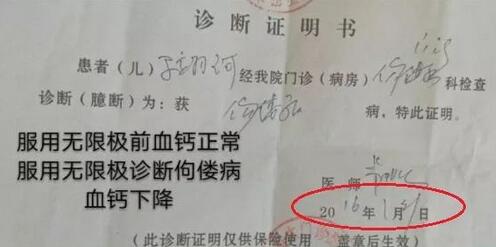 诊断证明书
患者（儿） 经我院门诊（病房） 科检查
诊断（臆断）为：获 佝偻病 病，特此证明。
服用无限极前血钙正常
服用无限极诊断佝偻病
血钙下降
医师
2016年1月 日
此诊断证明仅供保险使用 盖章后生效）